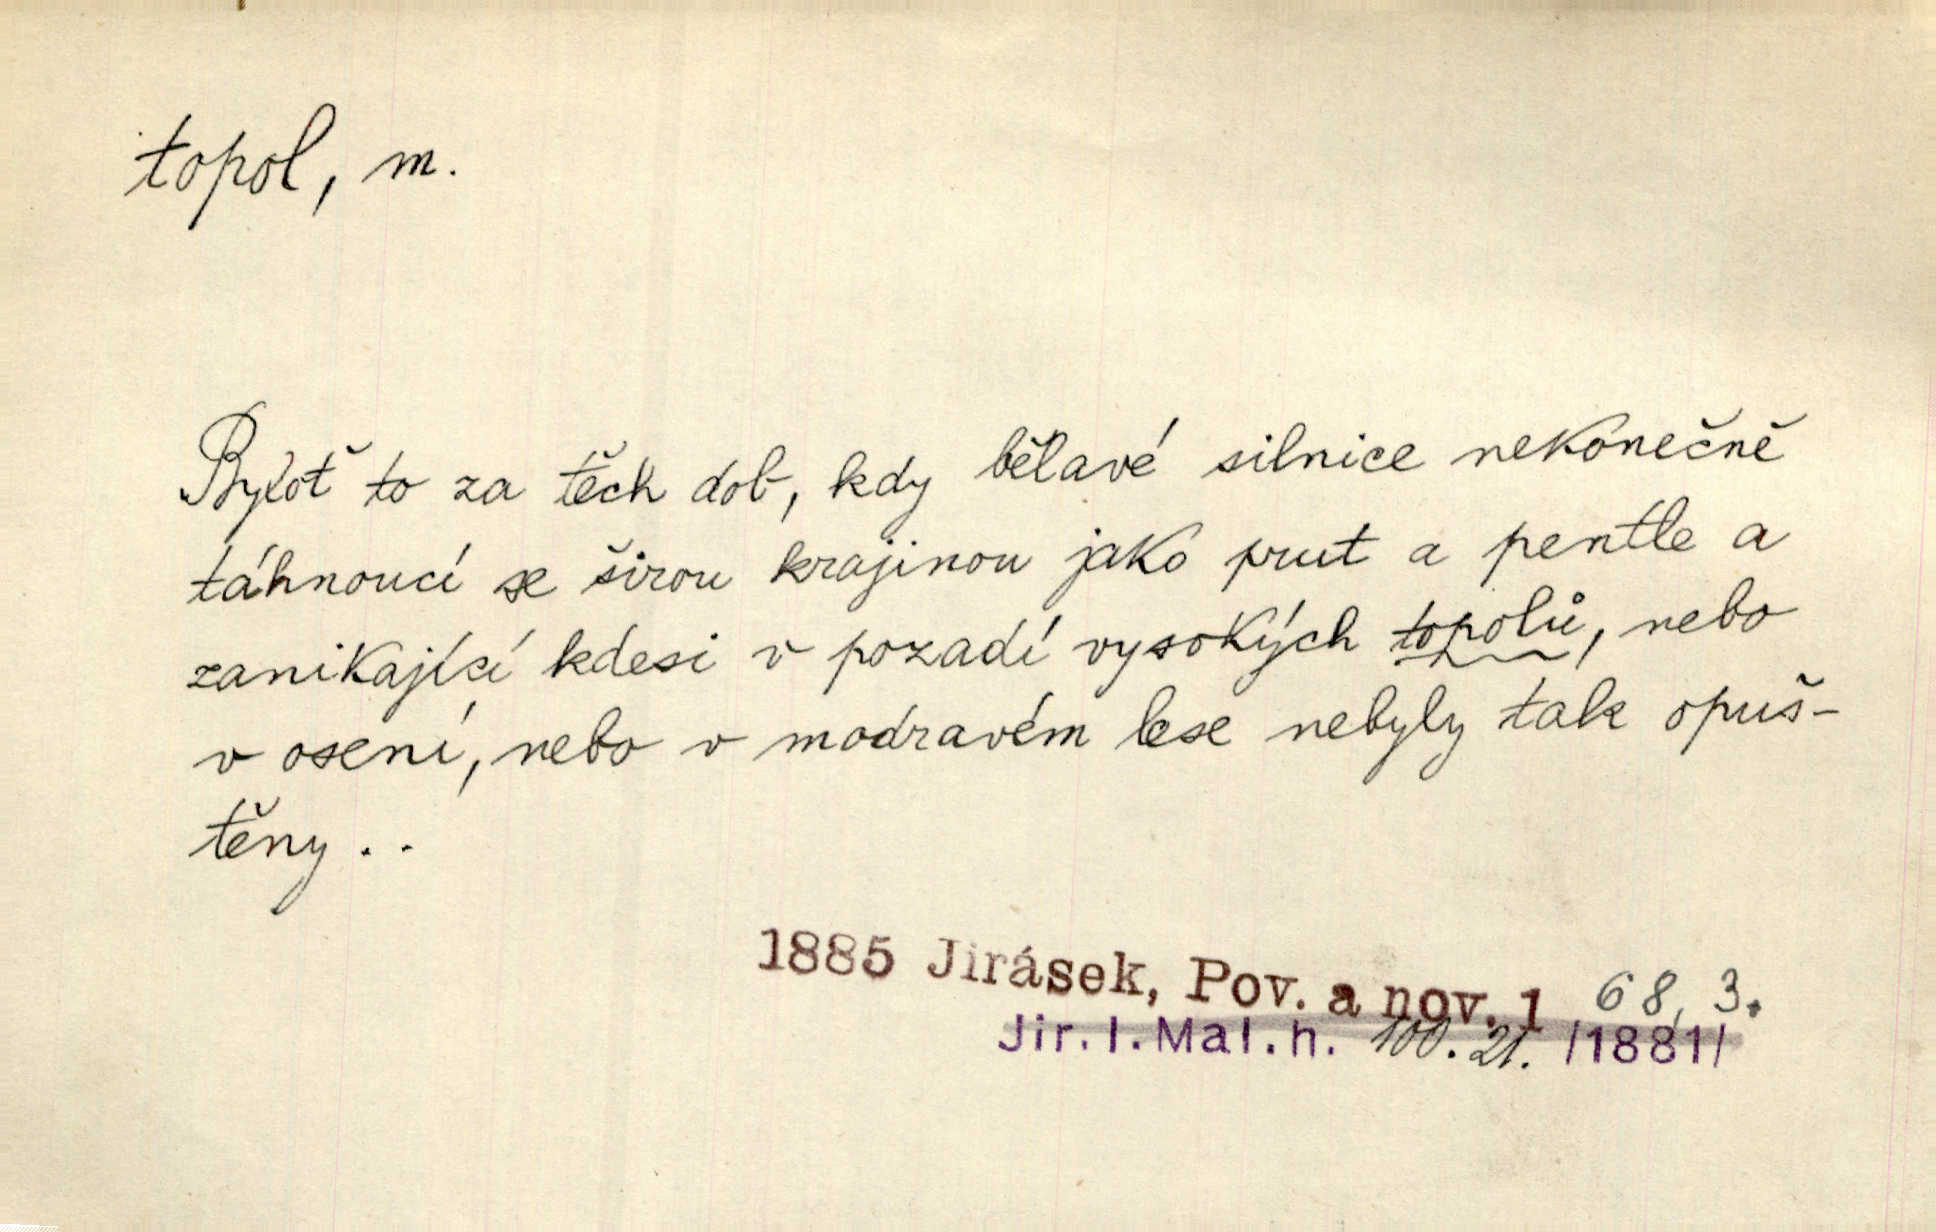 topol, m.
Byloť to za těch dob, kdy bělavé silnice nekonečně
táhnoucí se širou krajinou jako prut a pentle a
zanikající kdesi v pozadí vysokých topolů, nebo
v osení, nebo v modravém lese nebyly tak opuš-
těny . .
1885 Jirásek, Pov. a nov. 1 68, 3.
Jir. I. Mal. h. 100. 21. /1881/